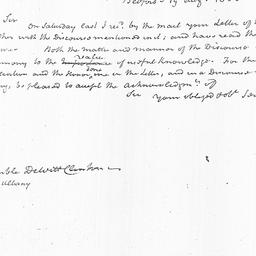 Bedford
Sir
On Saturday last I recd. by the mail your Letter of
ther with the Discourse mentioned in it; and have read the
Both the matter and manner of the Discourse
mony to the value of useful knowledge. For the
tention and the Honor done me in the letter, and in a Discourse
be pleased to accept the acknowledgmts. of
Sir Your obliged Obt. Ser
ble DeWitt Clinton
Albany